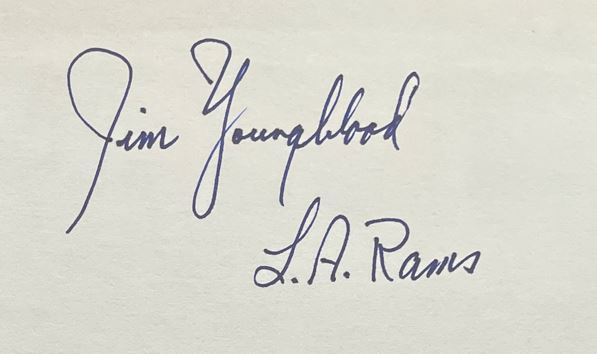 Jim Youngblood
L.A. Rams